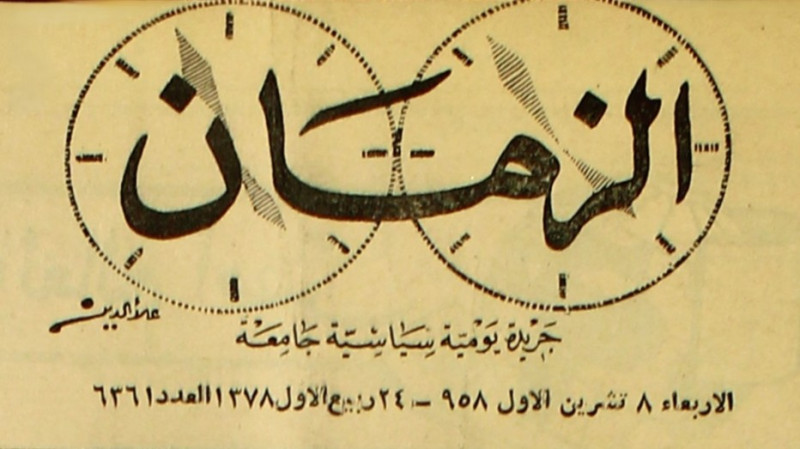 الزمان
علاء الدين
جريدة يومية سياسية جامعة
الاربعاء ٨ تشرين الاول ٩٥٨ – ٢٤ ربيع الاول ١٣٧٨ العدد ٦٣٦١